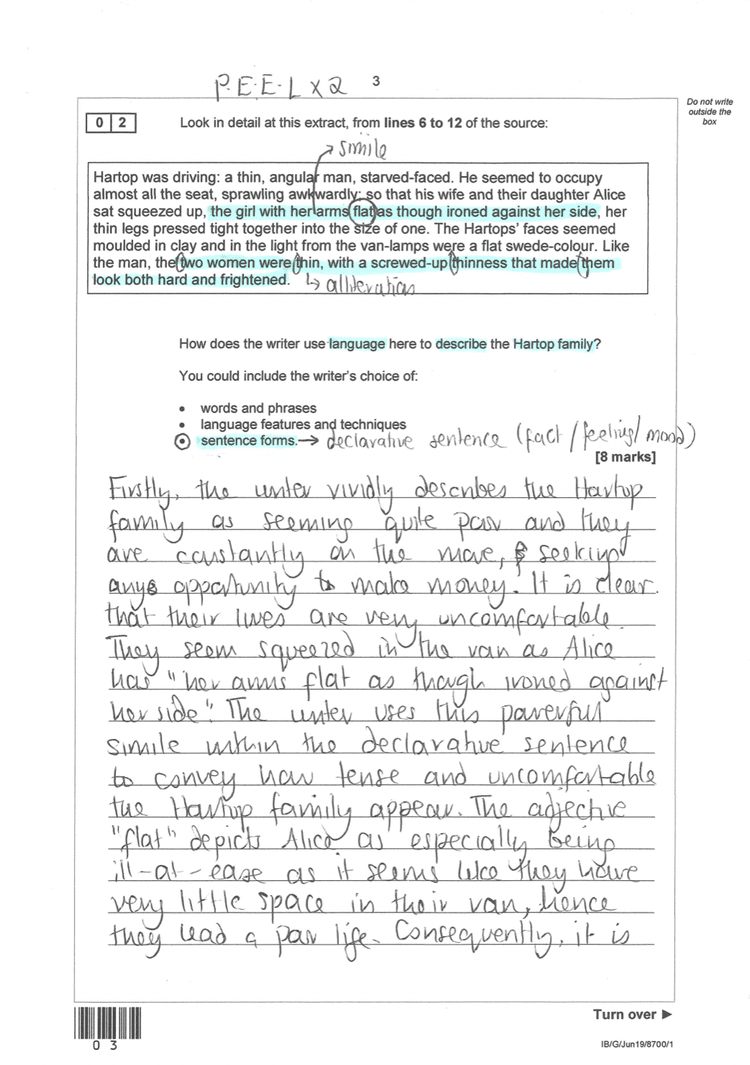 P.E.E.L x2
3
Do not write
outside the
box
0 2
Look in detail at this extract, from lines 6 to 12 of the source:
simile
Hartop was driving: a thin, angular man, starved-faced. He seemed to occupy
almost all the seat, sprawling awkwardly; so that his wife and their daughter Alice
sat squeezed up, the girl with her arms flat as though ironed against her side, her
thin legs pressed tight together into the size of one. The Hartops' faces seemed
moulded in clay and in the light from the van-lamps were a flat swede-colour. Like
the man, the two women were thin, with a screwed-up thinness that made them
look both hard and frightened.
alliteration
How does the writer use language here to describe the Hartop family?
You could include the writer's choice of:
• words and phrases
• language features and techniques
• sentence forms. → declarative sentence (fact / feeling / mood)
[8 marks]
Firstly, the writer vividly describes the Hartop
family as seeming quite poor and they
are constantly on the move, seeking
any opportunity to make money. It is clear
that their lives are very uncomfortable.
They seem squeezed in the van as Alice
has "her arms flat as though ironed against
her side". The writer uses this powerful
simile within the declarative sentence
to convey how tense and uncomfortable
the Hartop family appear. The adjective
"flat" depicts Alice as especially being
ill-at-ease as it seems like they have
very little space in their van, hence
they lead a poor life. Consequently, it is
Turn over ►
0 3
IB/G/Jun19/8700/1